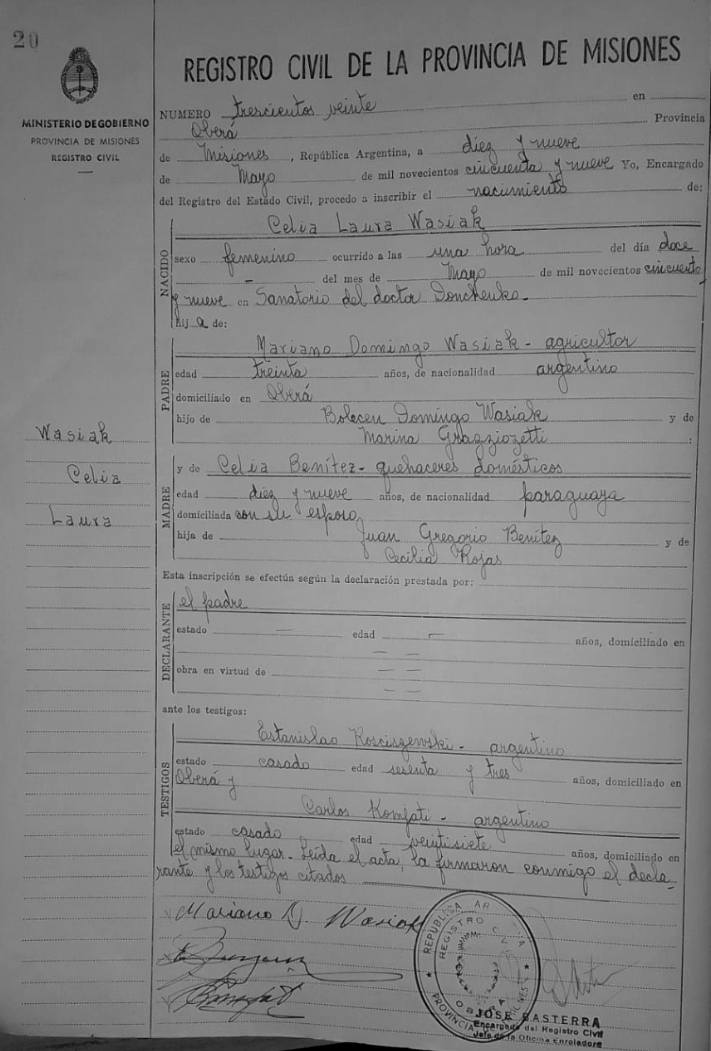 20
MINISTERIO DE GOBIERNO
PROVINCIA DE MISIONES
REGISTRO CIVIL
REGISTRO CIVIL DE LA PROVINCIA DE MISIONES
NUMERO trescientos veinte en
Oberá Provincia
de Misiones, República Argentina, a diez y nueve
de Mayo de mil novecientos cincuenta y nueve Yo, Encargado
del Registro del Estado Civil, procedo a inscribir el nacimiento de:
NACIDO
Celia Laura Wasiak
sexo femenino ocurrido a las una hora del día doce
del mes de Mayo de mil novecientos cincuenta
y nueve en Sanatorio del doctor Donchenko.
hija de:
PADRE
Mariano Domingo Wasiak - agricultor
edad treinta años, de nacionalidad argentino
domiciliado en Oberá
hijo de Domingo Wasiak y de
Marina :
Wasiak
Celia
Laura
MADRE
y de Celia Benítez - quehaceres domésticos
edad diez y nueve años, de nacionalidad paraguaya
domiciliada con su esposo
hija de Juan Gregorio Benítez y de
Cecilia Rojas
Esta inscripción se efectúa según la declaración prestada por:
DECLARANTE
el padre
estado — edad — años, domiciliado en
— —
obra en virtud de — —
— —
ante los testigos:
TESTIGOS
Estanislao Kosciszewski - argentino
estado casado edad sesenta y tres años, domiciliado en
Oberá y
Carlos - argentino
estado casado edad veintisiete años, domiciliado en
el mismo lugar. Leída el acta, la firmaron conmigo el decla-
rante y los testigos citados
Mariano D. Wasiak
REGISTRO CIVIL
JOSE BASTERRA
Encargado del Registro Civil
Jefe de la Oficina Enroladora